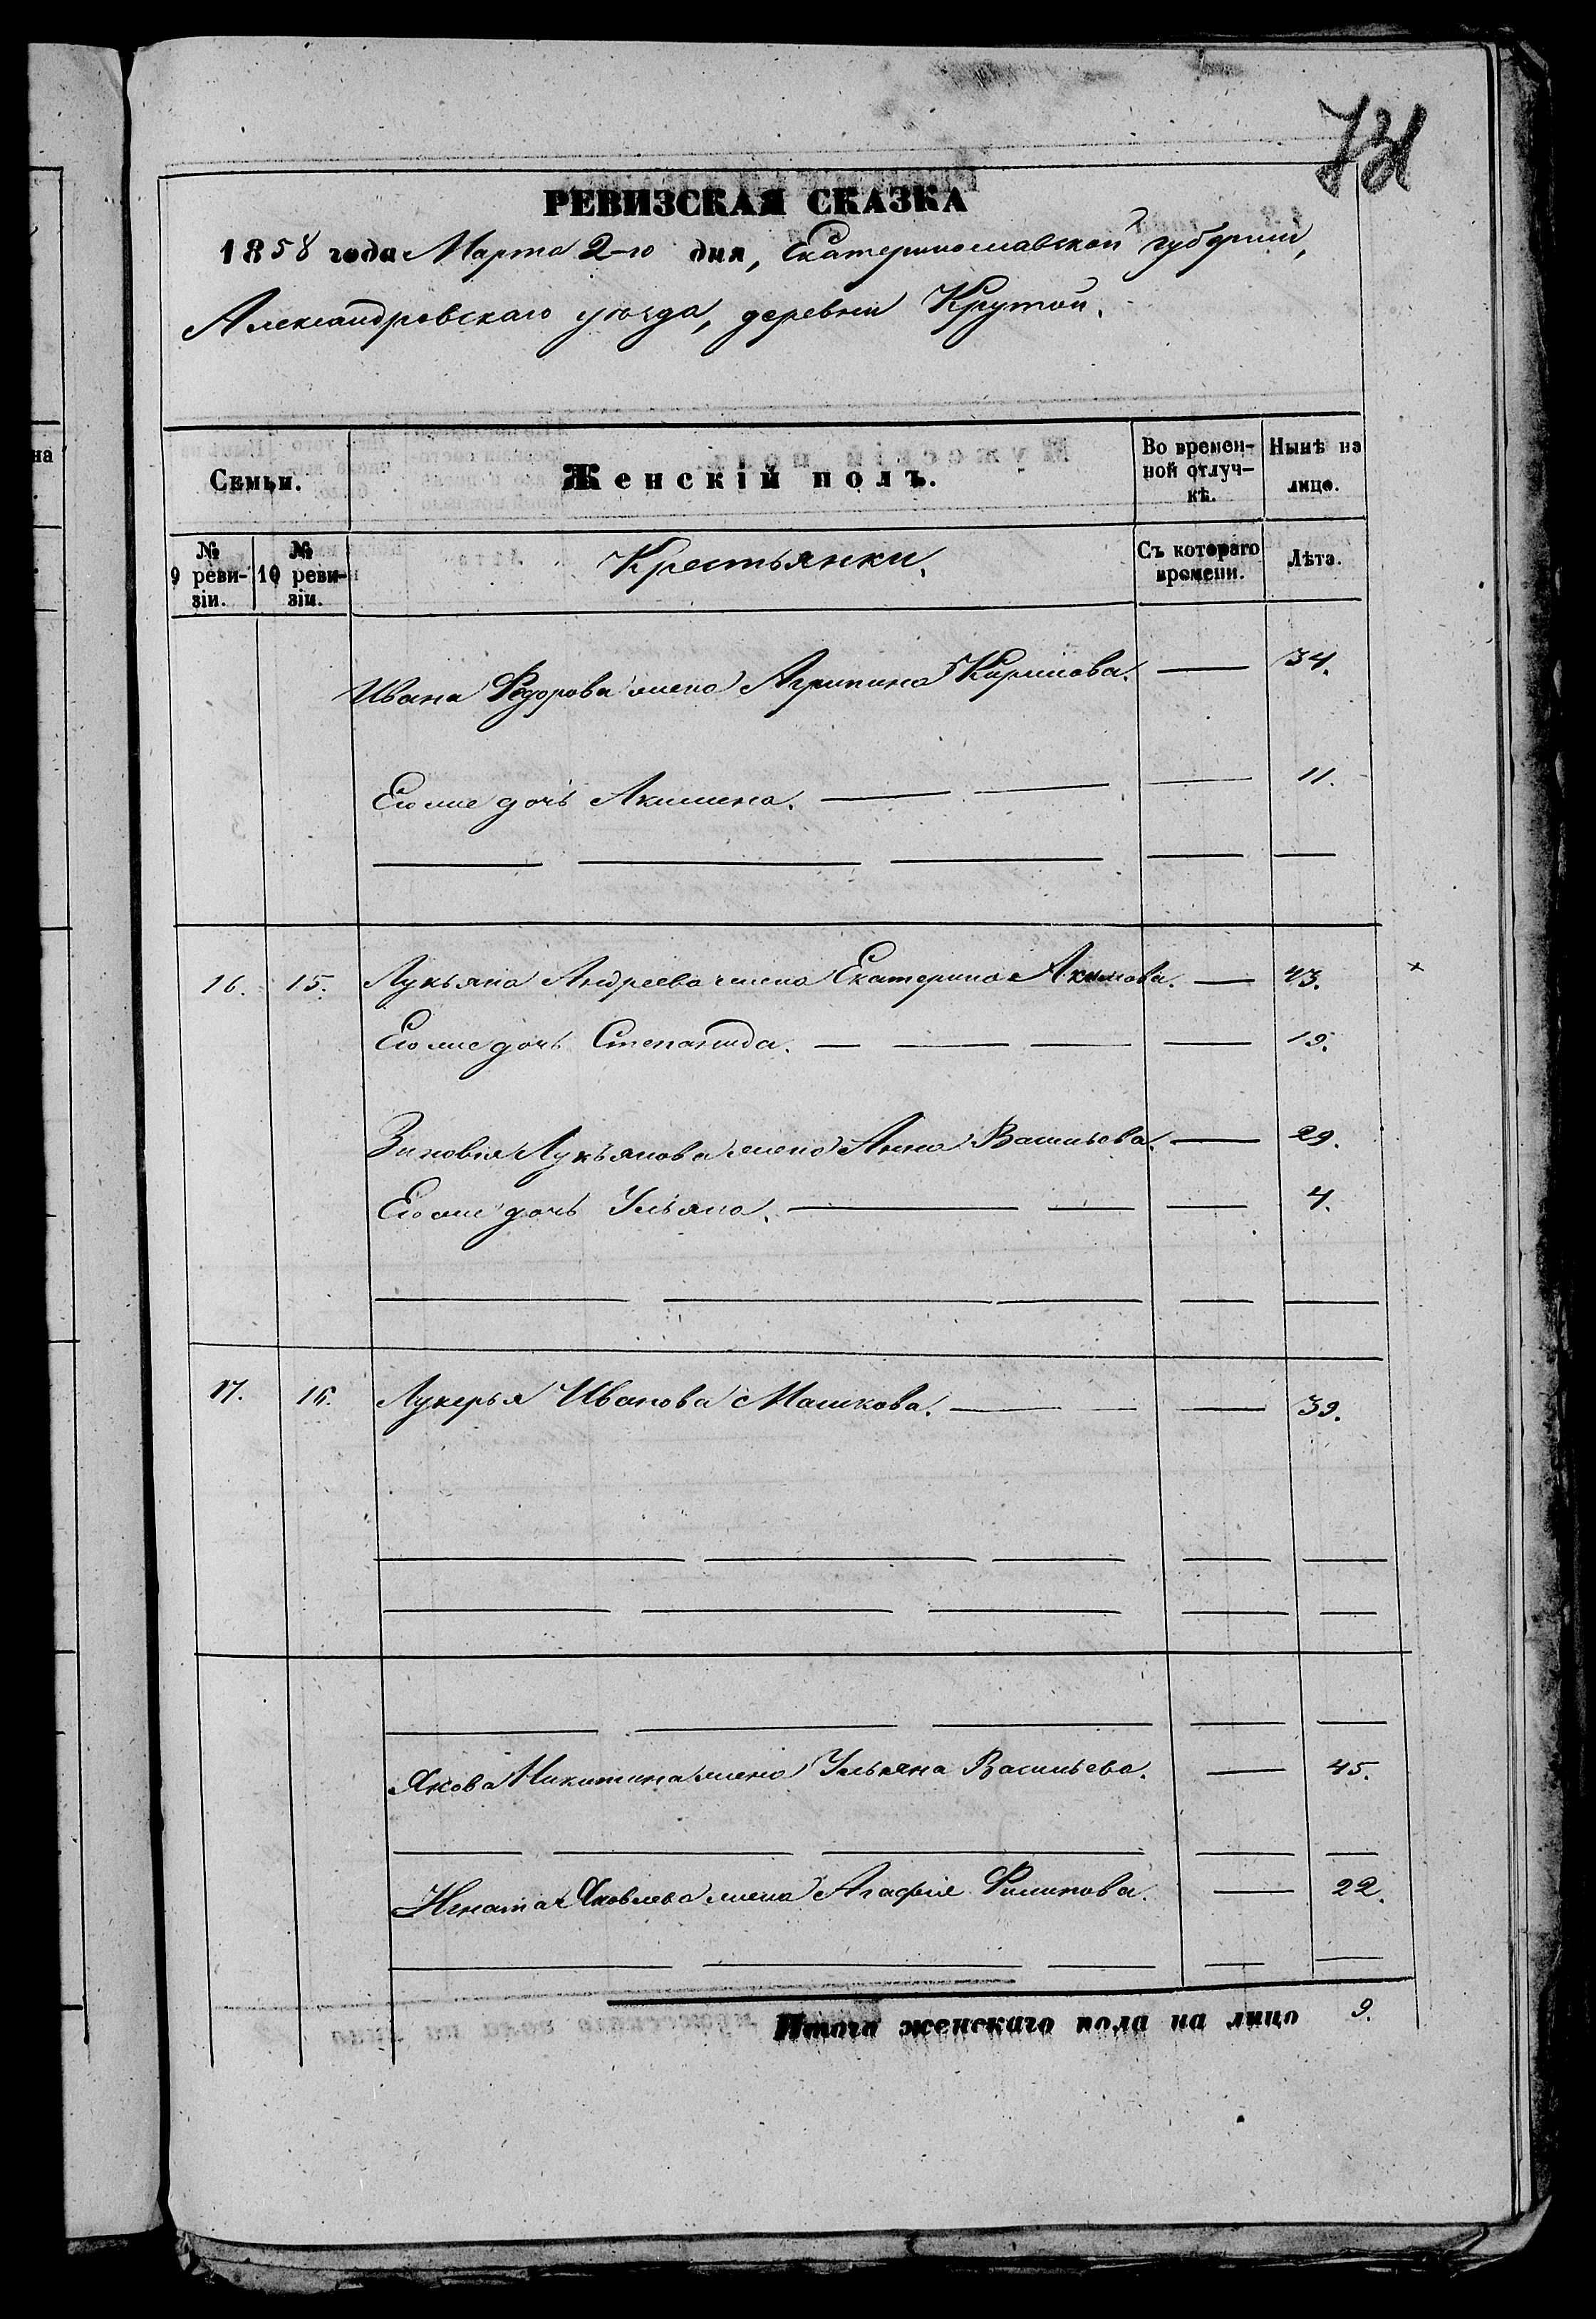 РЕВИЗСКАЯ СКАЗКА
1858 года Марта 2-го дня, Екатеринославской губернии,
Александровскаго уѣзда, деревни Крутой.
Семьи.
Женскій полъ.
Во времен-
ной отлуч-
кѣ.
Нынѣ на
лицо.
№
9 реви-
зіи.
№
10 реви-
зіи.
Крестьянки.
Съ котораго
времени.
Лѣта.
Ивана Федорова жена Агрипина Карпова. — 34.
Его же дочь Акилина. — 11.
16. 15. Лукьяна Андреева жена Екатерина Акимова. — 43.
Его же дочь Степанида. — 19.
Зиновія Лукьянова жена Анна Васильева. — 29.
Его же дочь Ульяна. — 4.
17. 16. Лукерья Иванова Машкова. — 39.
Якова Никитина жена Ульяна Васильева. — 45.
Игната Яковлева жена Агафія Филипова. — 22.
Итого женскаго пола на лицо 9.